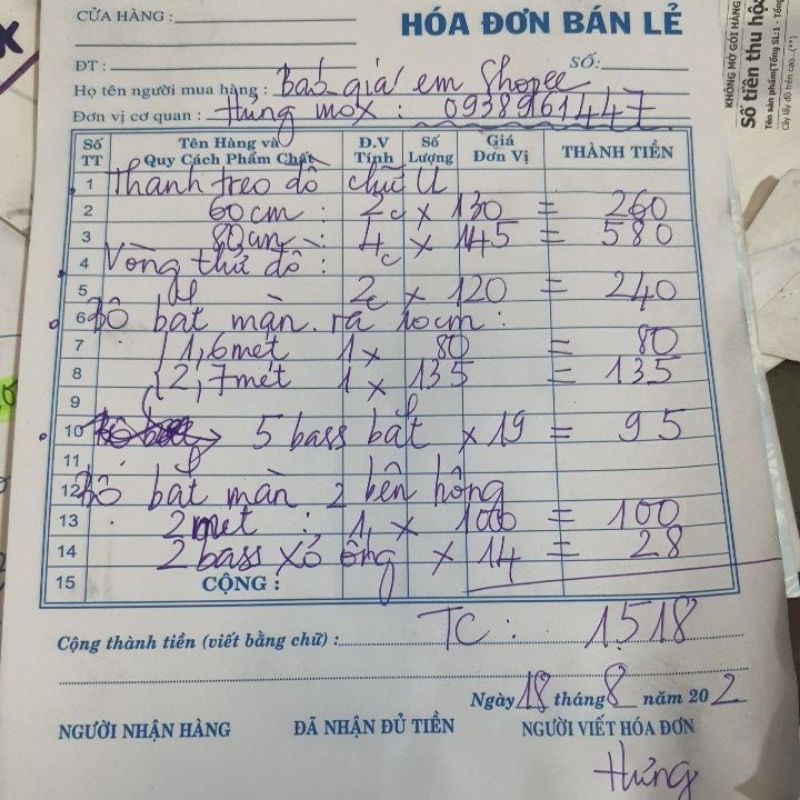 CỬA HÀNG :
HÓA ĐƠN BÁN LẺ
ĐT : SỐ:
Họ tên người mua hàng : Báo giá em Shopee
Đơn vị cơ quan : Hưng mox : 0938961447
Số TT Tên Hàng và Quy Cách Phẩm Chất Đ.V Tính Số Lượng Giá Đơn Vị THÀNH TIỀN
1 Thanh treo đồ chữ U
2 60cm : 2c x 130 = 260
3 80cm : 4c x 145 = 580
4 Vòng thử đồ :
5 2c x 120 = 240
6 Bộ bạt màn ra 10cm :
7 1,6 mét 1 x 80 = 80
8 2,7 mét 1 x 135 = 135
9
10 5 bass bắt x 19 = 95
11
12 Bộ bạt màn 2 bên hông
13 2 mét : 1 x 100 = 100
14 2 bass xỏ ống x 14 = 28
15 CỘNG :
Cộng thành tiền (viết bằng chữ) : TC : 1518
Ngày 18 tháng 8 năm 20 2
NGƯỜI NHẬN HÀNG ĐÃ NHẬN ĐỦ TIỀN NGƯỜI VIẾT HÓA ĐƠN
Hưng
KHÔNG MỞ GÓI HÀNG
Số tiền thu hộ